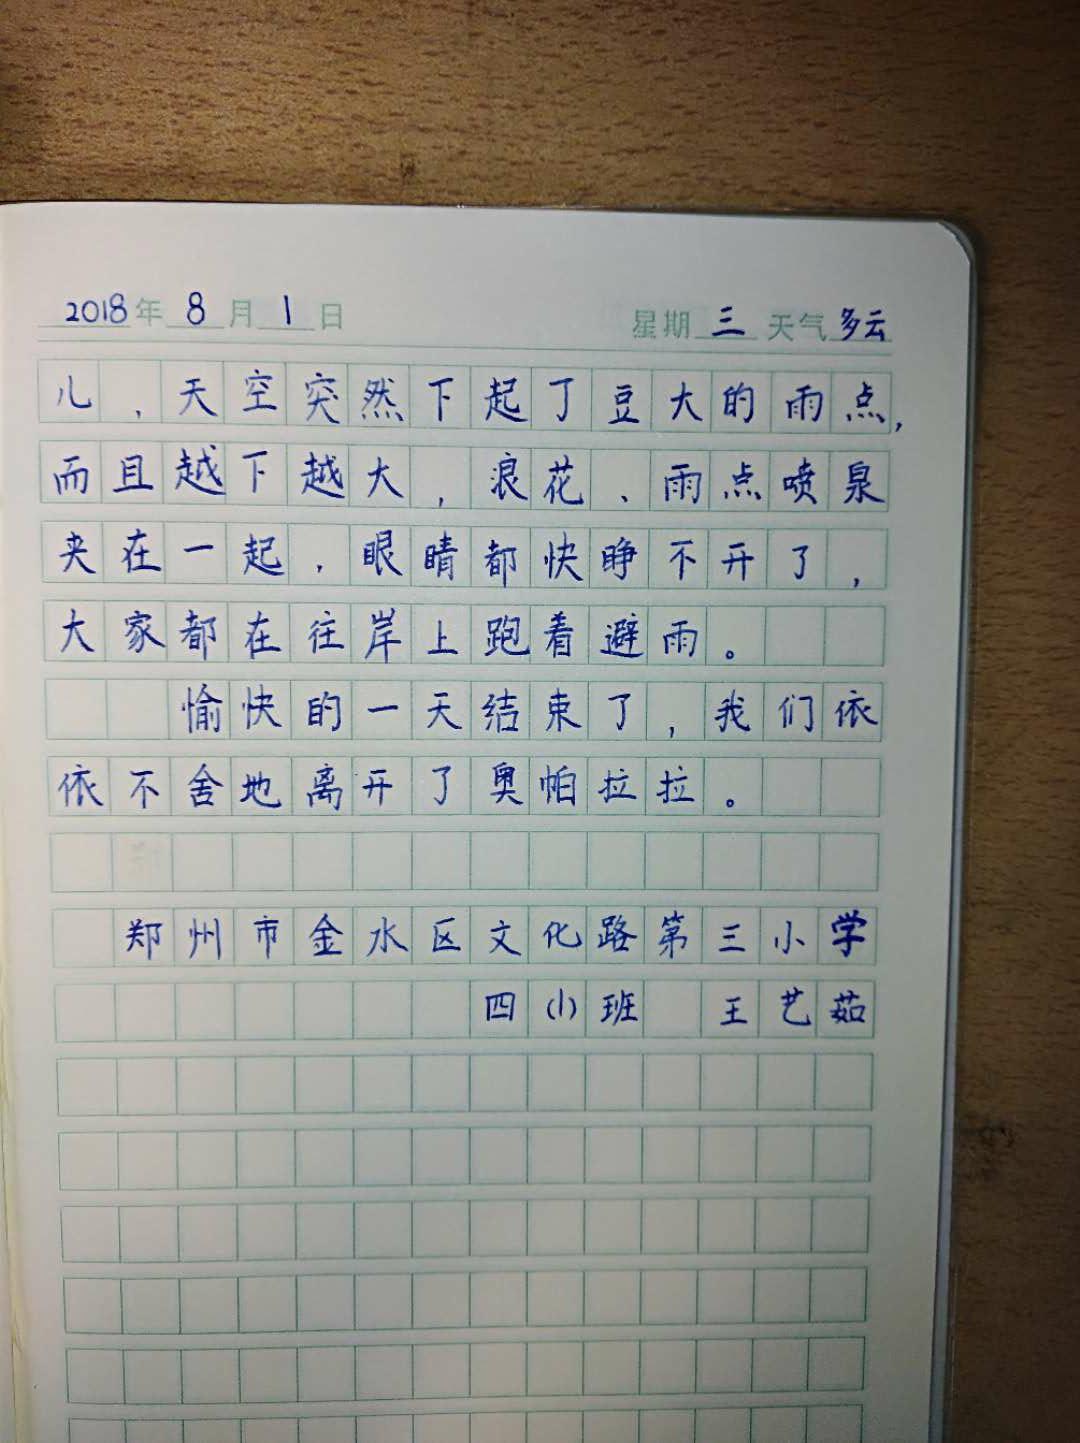 2018年 8月 1日 星期 三 天气 多云
儿，天空突然下起了豆大的雨点，
而且越下越大，浪花、雨点喷泉
夹在一起，眼睛都快睁不开了，
大家都在往岸上跑着避雨。
愉快的一天结束了，我们依
依不舍地离开了奥帕拉拉。
郑州市金水区文化路第三小学
四(1)班 王艺茹